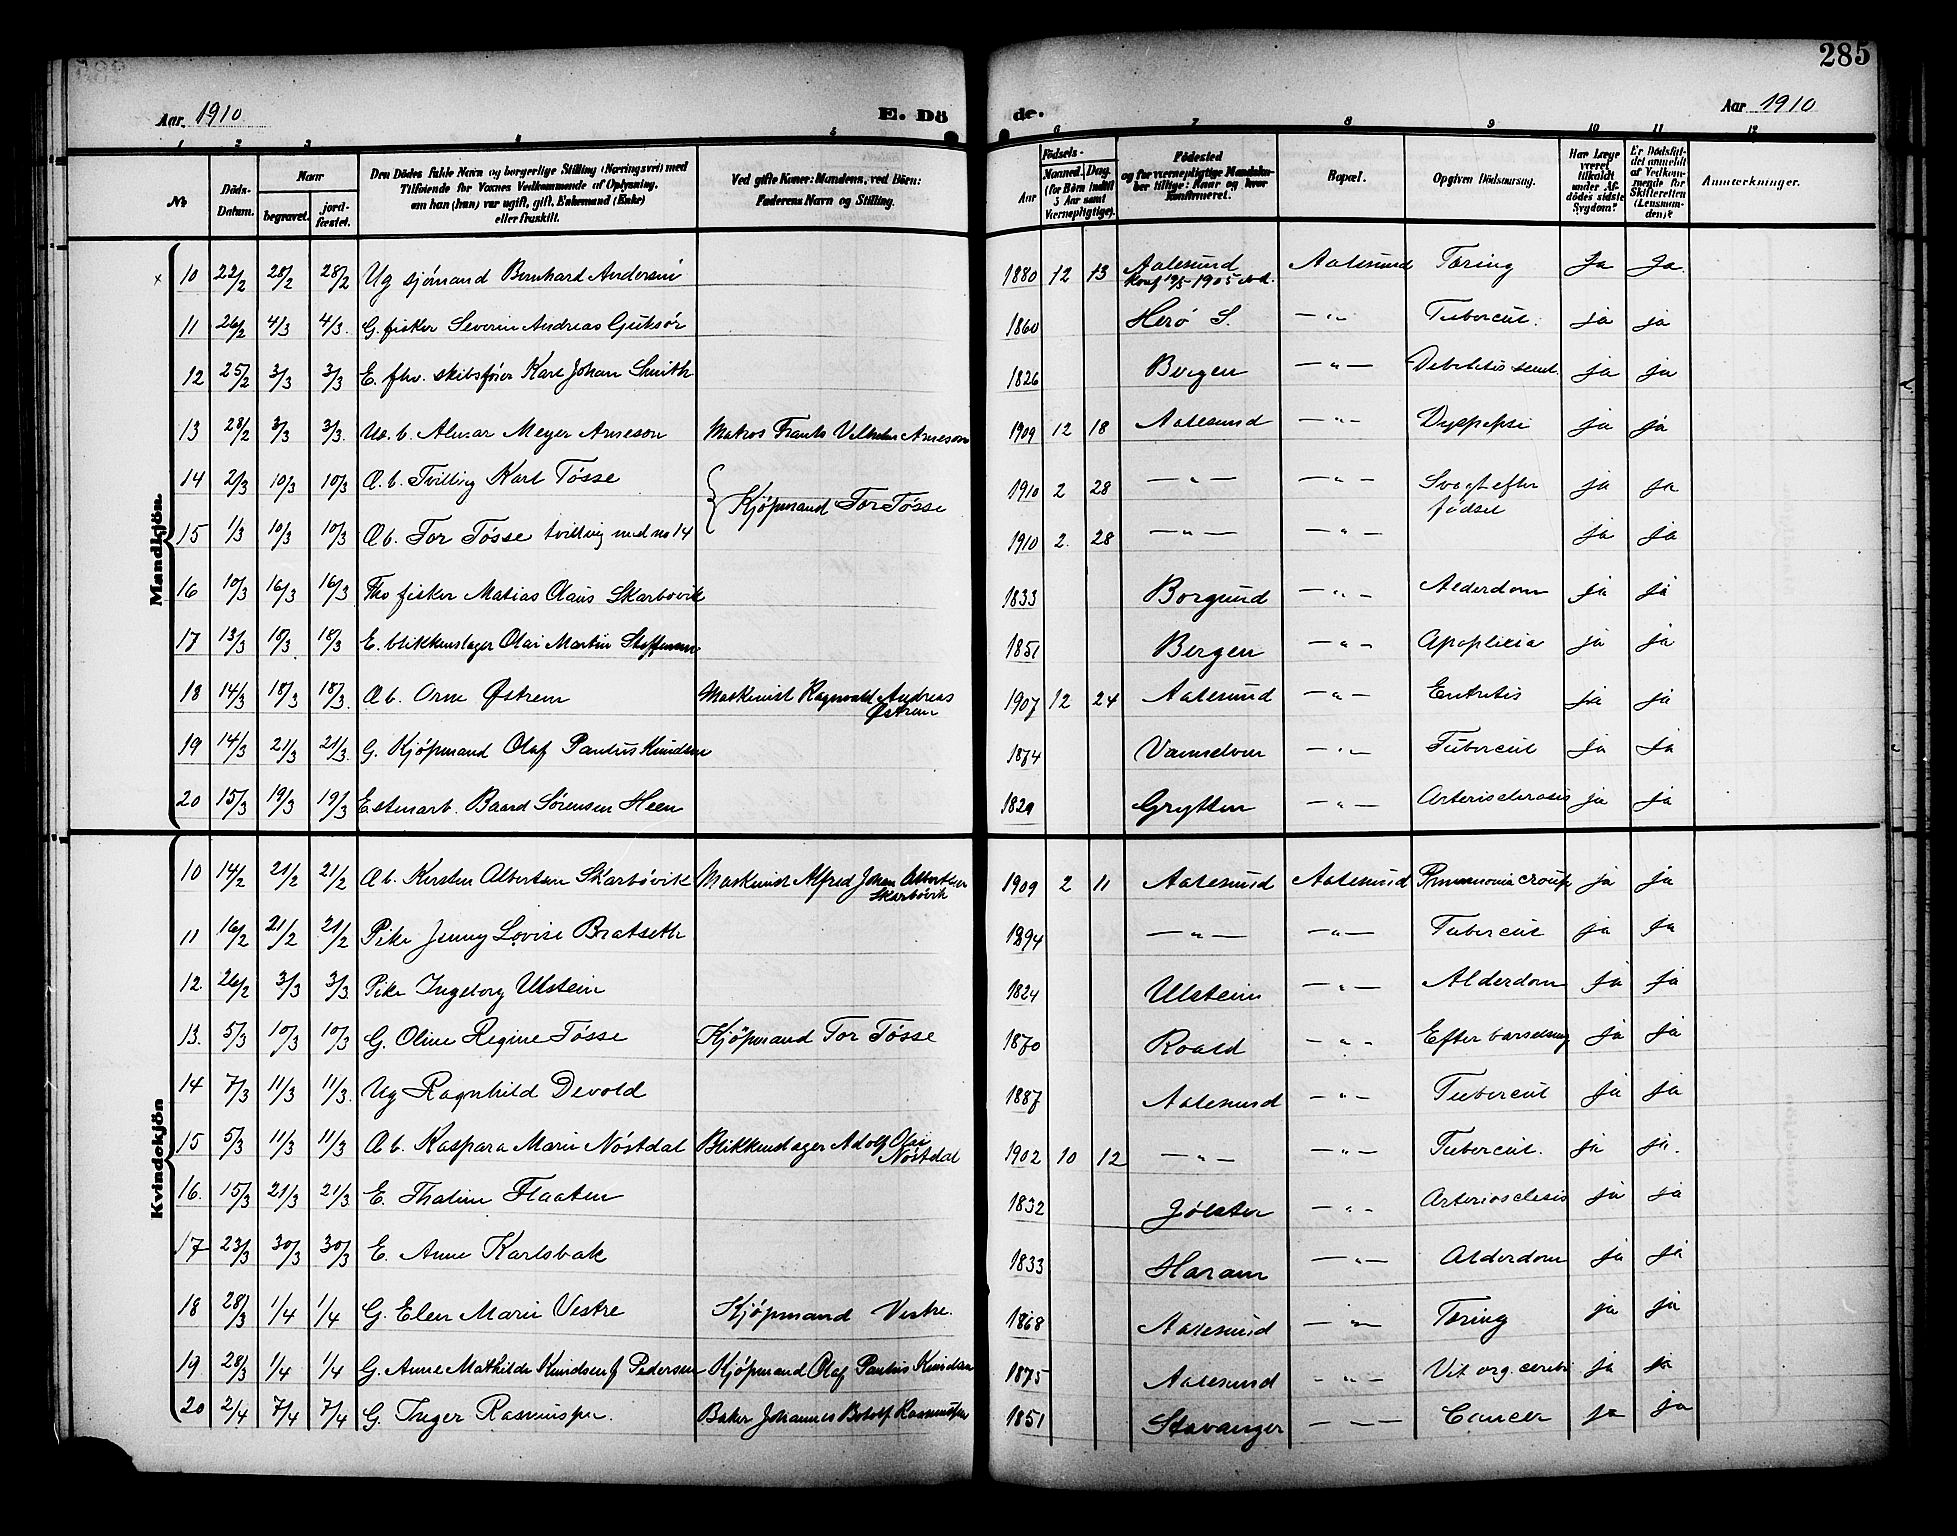 285
Aar. 1910 E. Dö de. Aar 1910
1 2 3 4 5 6 7 8 9 10 11 12
No Döds-Datum. Naar begravet. jord-fæstet. Den Dödes fulde Navn og borgerlige Stilling (Næringsvei) med Tilföiende for Voxnes Vedkommende af Oplysning, om han (hun) var ugift, gift, Enkemand (Enke) eller fraskilt. Ved gifte Koner: Mandens, ved Börn: Faderens Navn og Stilling. Födsels- Aar Maaned. Dag. (for Börn indtil 5 Aar samt Værnepligtige). Födested og for værnepligtige Mandskaber tillige: Naar og hvor konfirmeret. Bopæl. Opgiven Dödsaarsag. Har Læge været tilkaldt under Afdödes sidste Sygdom? Er Dödsfaldet anmeldt af Vedkommende for Skifteretten (Lensmanden)? Anmærkninger.
Mandkjön
x 10 22/2 28/2 28/2 Ug sjømand Bernhard Andersen 1880 12 13 Aalesund Konf 1905 Aalesund Tæring Ja Ja.
11 26/2 4/3 4/3. G. fisker Severin Andreas Gjutsør 1860 Herø S. — " — Tubercul. ja ja
12 25/2 3/3 3/3 E. fhv. skibsfører Karl Johan Smith 1826 Bergen — " — Debilitis senil. ja ja
13 28/2 3/3 3/3. Ua. b. Almar Meyer Arneson Matros Frants Vilhelm Arneson 1909 12 18 Aalesund — " — Dyspepsi ja ja
14 2/3 10/3 10/3 Æ. b. Tvilling Karl Tøsse Kjøpmand Tor Tøsse 1910 2 28 — " — — " — Svagt efter fødsel ja ja
15 1/3 10/3 10/3 Æb. Tor Tøsse tvilling med no 14 1910 2. 28 — " — — " — ja ja
16 10/3 16/3 16/3 Fhv fisker Matias Olaus Skarbøvik 1833 Borgund — " — Alderdom ja ja
17 13/3 18/3 18/3 E. blikkenslager Olai Martin Steffensen 1851 Bergen — " — Apoplexia ja ja
18 14/3 18/3 18/3. Æb. Arne Østrem Maskinist Ragnvald Andreas Østrem 1907 12 24 Aalesund — " — Entritis ja ja
19 14/3 21/3 21/3. G. Kjøpmand Olaf Paulus Knudsen 1874 Vannelven — " — Tubercul ja ja
20 15/3 19/3 19/3 E stenarb. Baard Sørensen Heen 1829 Grytten — " — Arterisclerosis ja ja
Kvindekjön
10 14/2 21/2 21/2 Æb. Kirsten Albertsen Skarbøvik Maskinist Alfred Johan Albertsen Skarbøvik 1909 2 11 Aalesund Aalesund Pneumonia croup ja ja
11 16/2 21/2 21/2 Pike Jenny Lovise Bratseth 1894 — " — — " — Tubercul ja ja
12 26/2 3/3 3/3. Pike Ingeborg Ulstein 1824 Ulstein — " — Alderdom ja ja
13. 5/3 10/3 10/3 G. Oline Regine Tøsse Kjøpmand Tor Tøsse 1870 Roald — " — Efter barselseng ja ja
14 7/3 11/3 11/3. Ug Ragnhild Devold 1887 Aalesund — " — Tubercul ja ja
15 5/3 11/3 11/3 Æb. Kaspara Marie Nøstdal Blikkenslager Adolf Olai Nøstdal 1902 10 12 — " — — " — Tubercul. ja ja.
16. 15/3 21/3 21/3 E. Thaline Flaaten 1832 Jølster — " — Arteriosclesis ja ja
17 23/3 30/3 30/3 E. Anne Karlsbak 1833 Haram — " — Alderdom ja ja
18 28/3 1/4 1/4 G. Elen Marie Vestre Kjøpmand Vestre. 1868 Aalesund — " — Tæring ja ja
19 28/3 1/4 1/4 G. Anne Mathilde Knudsen f Pedersen Kjøpmand Olaf Paulus Knudsen 1875 Aalesund — " — Vit org. cerebri ja ja
20 2/4 7/4 7/4 G. Inger Rasmussen. Baker Johannes Botolf Rasmussen 1851 Stavanger — " — Cancer ja ja